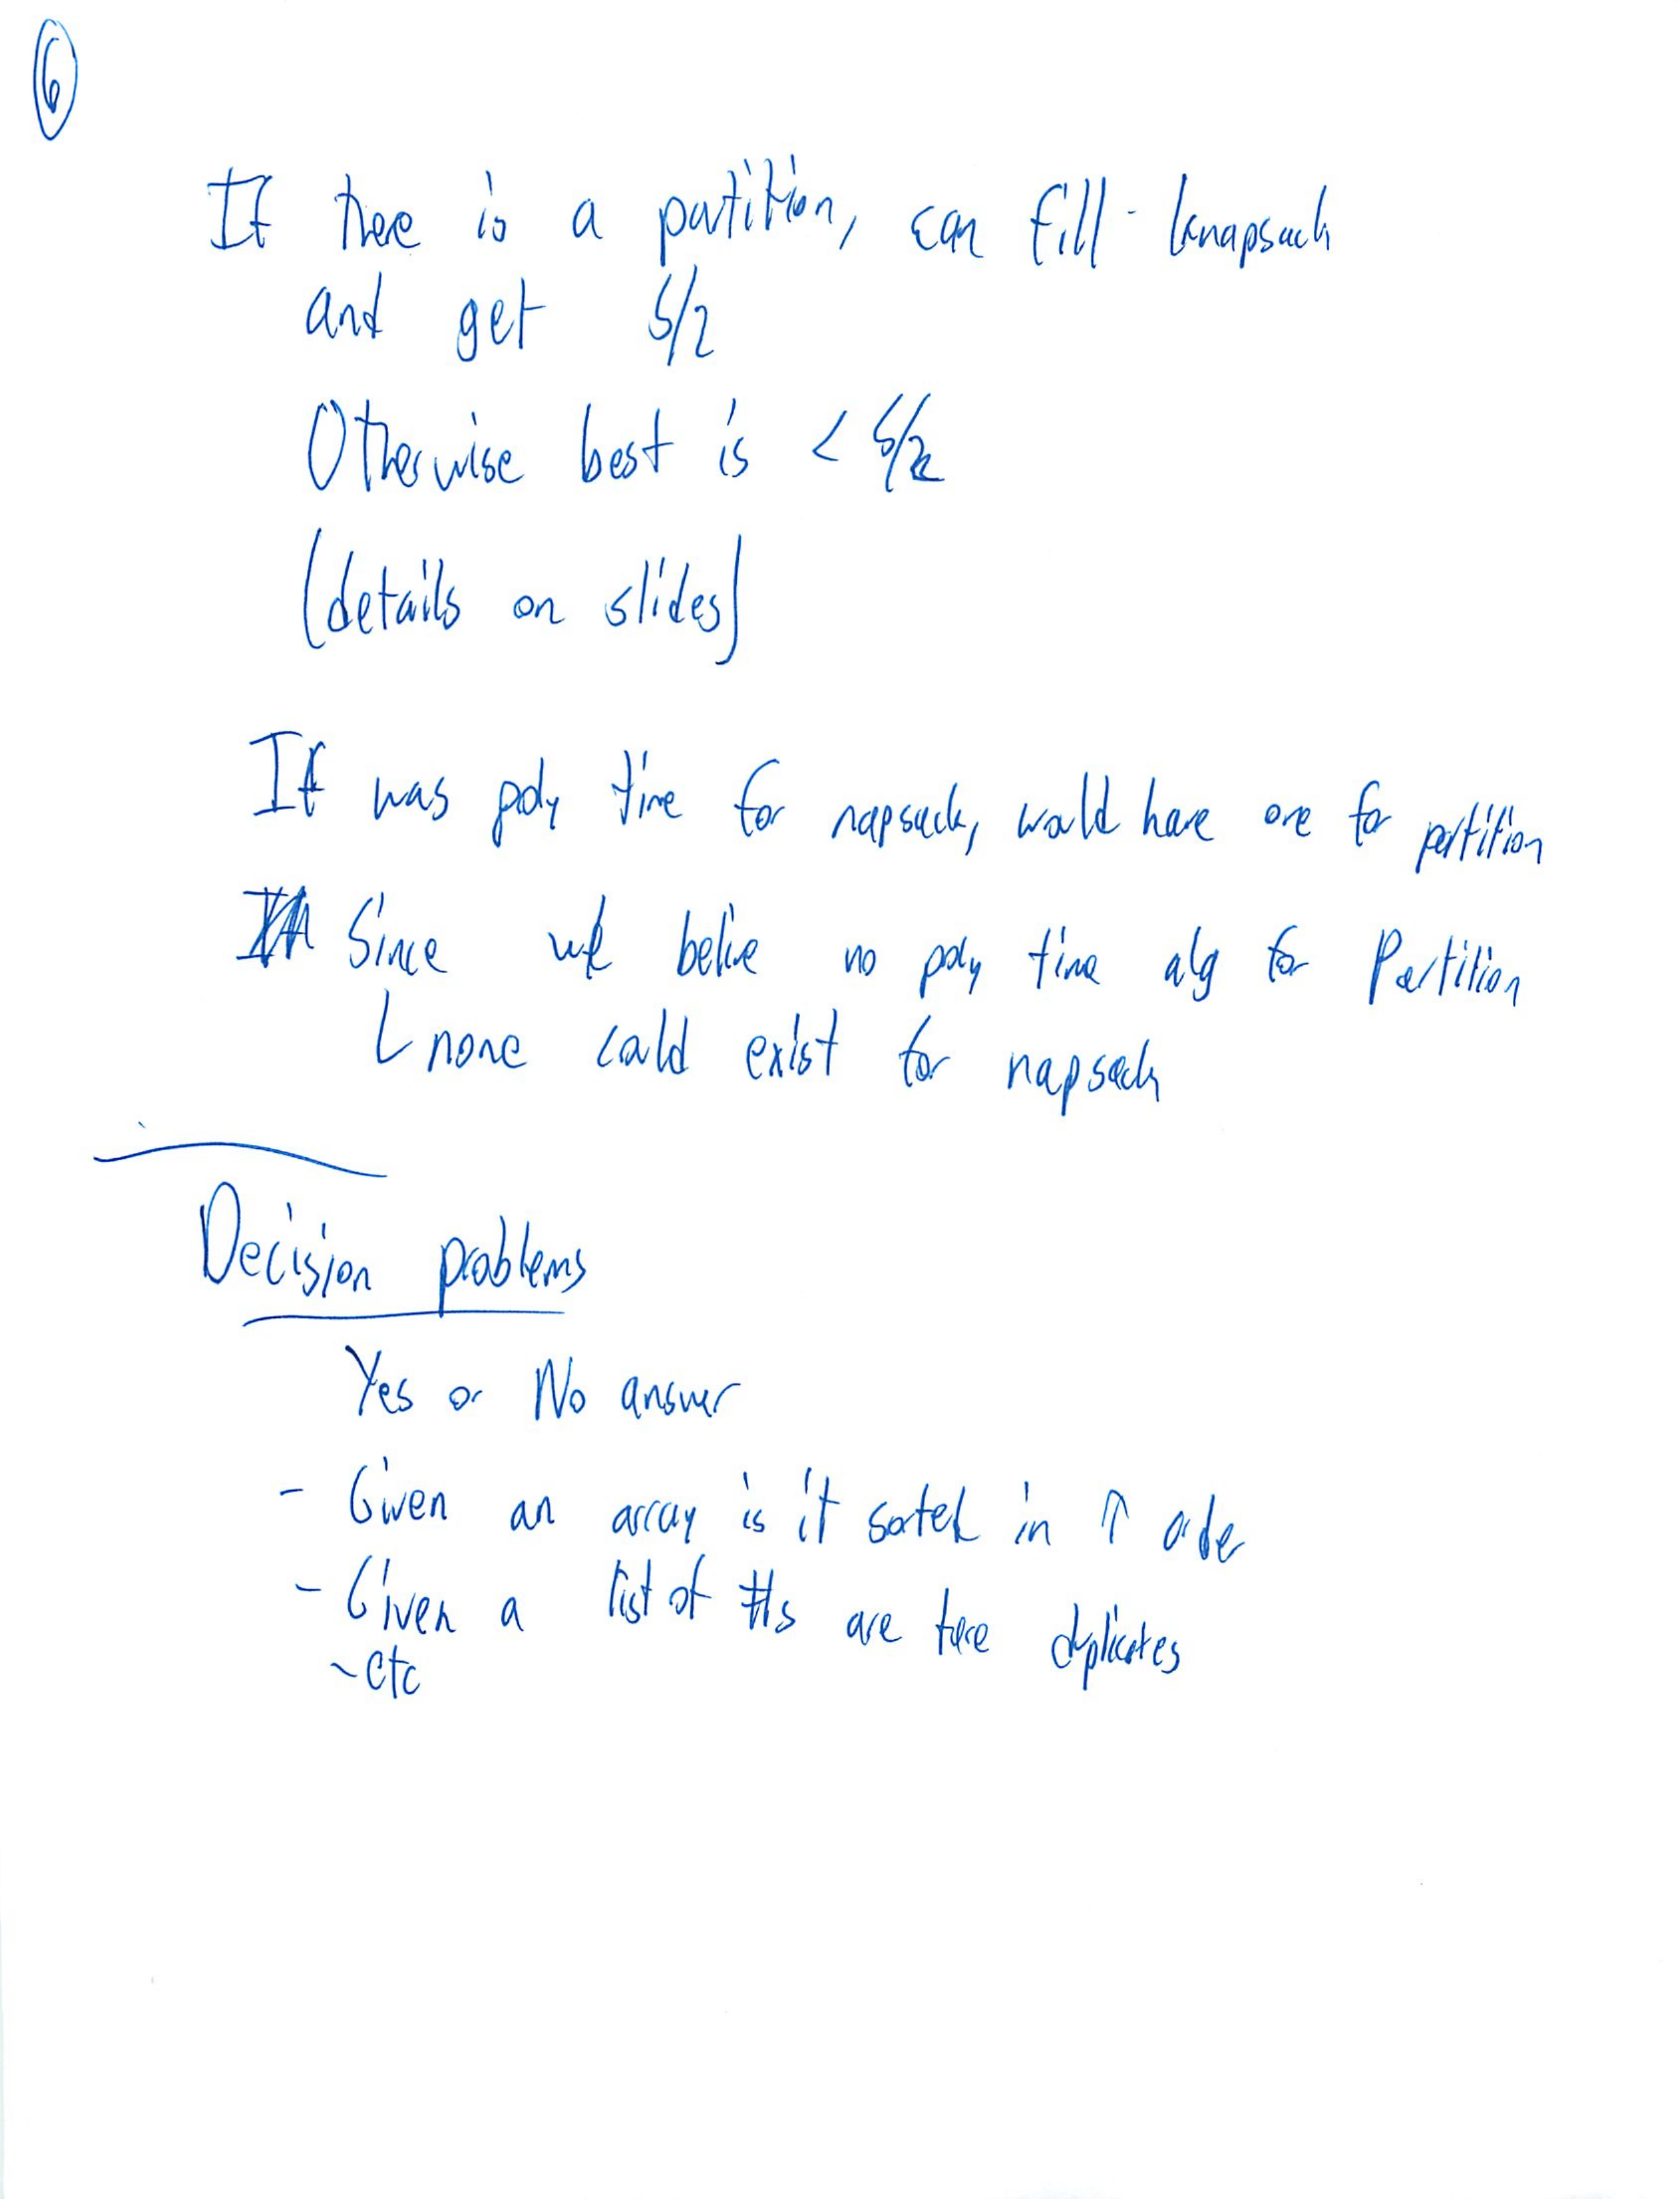 6
If there is a partition, can fill knapsack
and get S/2
Otherwise best is < S/2
(details on slides)
If was poly time for napsack, would have one for partition
Since we belive no poly time alg for Partition
none could exist for napsack
Decision problems
Yes or No answer
- Given an array is it sorted in ↑ order
- Given a list of #s are there duplicates
- etc